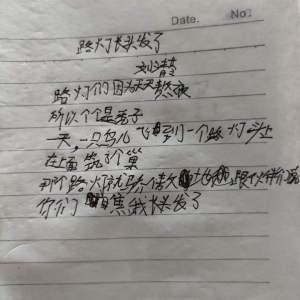 Date. No:
路灯长头发了
刘靜
路灯们因为天天熬夜
所以个个是秃子
一天,一只鸟儿飞到一个路灯头上
在上面筑了个巢
那个路灯就骄傲地跟大伙
你们瞧我长发了